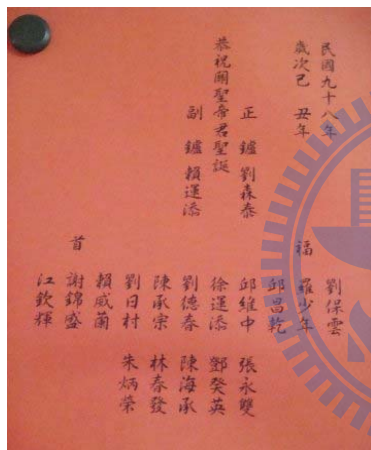 民國九十八年
歲次己丑年
正鑪 劉森泰
恭祝關聖帝君聖誕
副鑪 賴運添
福首
劉保雲
羅少年
邱昌乾
邱維中 張永雙
徐運添 鄧癸英
劉德春 陳海承
陳承宗 林春發
劉日村 朱炳榮
賴威蘭
謝錦盛
江欽輝